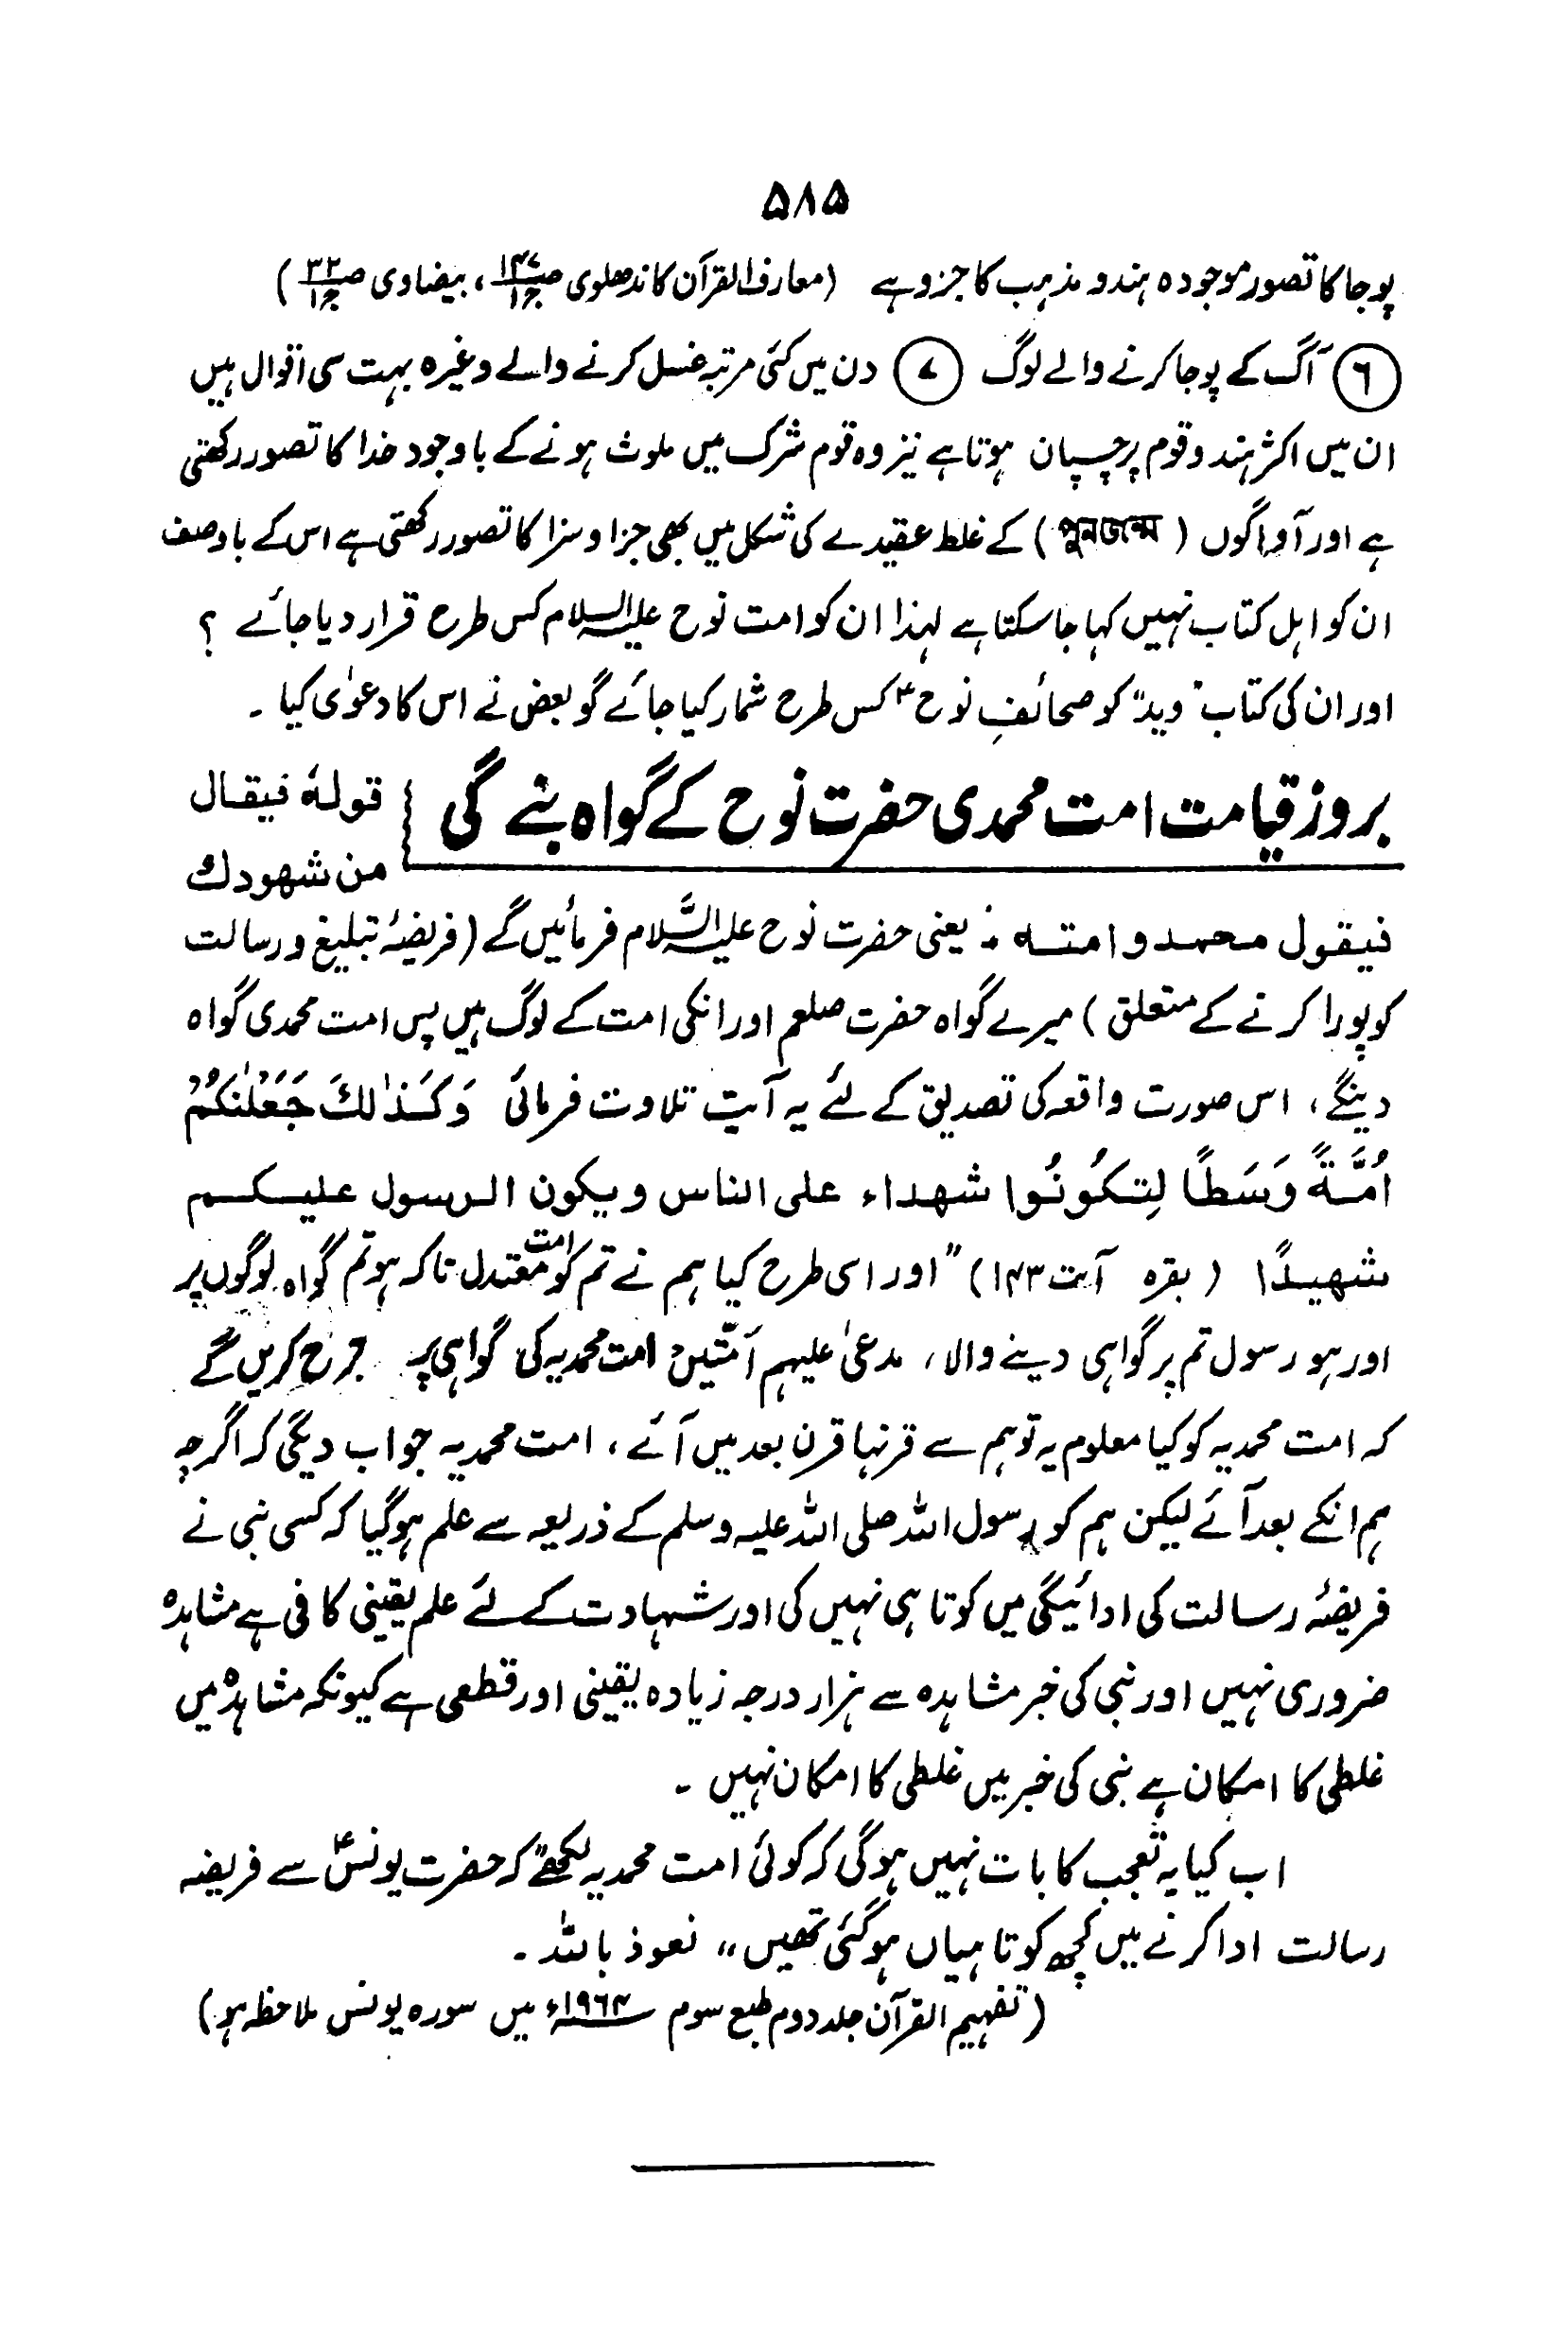 ۵۸۵
پوجا کا تصور موجودہ ہندو مذہب کا جزو ہے (معارف القرآن کاندھلوی ص۱۴۷ ج۱، بیضاوی ص۳۲ ج۱)
۶ آگ کے پوجا کرنے والے لوگ ۷ دن میں کئی مرتبہ غسل کرنے والے وغیرہ بہت سی اقوال ہیں
ان میں اکثر ہندو قوم پر چسپان ہوتا ہے نیز وہ قوم شرک میں ملوث ہونے کے باوجود خدا کا تصور رکھتی
ہے اور آواگوں (পুনর্জন্ম) کے غلط عقیدے کی شکل میں بھی جزا و سزا کا تصور رکھتی ہے اس کے باوصف
ان کو اہل کتاب نہیں کہا جا سکتا ہے لہذا ان کو امت نوح علیہ السلام کس طرح قرار دیا جائے ؟
اور ان کی کتاب "وید" کو صحائفِ نوح ؑ کس طرح شمار کیا جائے گو بعض نے اس کا دعوٰی کیا ۔
بروز قیامت امت محمدی حضرت نوح کے گواہ بنے گی قولہٗ فیقال
من شهودك
فیقول محمد و امتہ : یعنی حضرت نوح علیہ السَّلام فرمائیں گے (فریضۂ تبلیغ و رسالت
کو پورا کرنے کے متعلق) میرے گواہ حضرت صلعم اور انکی امت کے لوگ ہیں پس امت محمدی گواہ
دینگے، اس صورت واقعہ کی تصدیق کے لئے یہ آیت تلاوت فرمائی وَكَذٰلكَ جَعَلْنٰكُمْ
اُمَّةً وَسَطًا لِتكُونُوا شهداء علی الناس ویکون الرسول علیکم
شهیدًا (بقرہ آیت ۱۴۳) "اور اسی طرح کیا ہم نے تم کو امت معتدل تاکہ ہو تم گواہ لوگوں پر
اور ہو رسول تم پر گواہی دینے والا، مدعیٰ علیہم اُمّتیں امت محمدیہ کی گواہی پر جرح کریں گے
کہ امت محمدیہ کو کیا معلوم یہ تو ہم سے قرنہا قرن بعد میں آئے، امت محمدیہ جواب دیگی کہ اگرچہ
ہم انکے بعد آئے لیکن ہم کو رسول اللہ صلی اللہ علیہ وسلم کے ذریعہ سے علم ہو گیا کہ کسی نبی نے
فریضۂ رسالت کی ادائیگی میں کوتاہی نہیں کی اور شہادت کے لئے علم یقینی کافی ہے مشاہدہ
ضروری نہیں اور نبی کی خبر مشاہدہ سے ہزار درجہ زیادہ یقینی اور قطعی ہے کیونکہ مشاہدہ میں
غلطی کا امکان ہے نبی کی خبر میں غلطی کا امکان نہیں ۔
اب کیا یہ تعجب کا بات نہیں ہوگی کہ کوئی امت محمدیہ لکھے" کہ حضرت یونسؑ سے فریضہ
رسالت ادا کرنے میں کچھ کوتاہیاں ہو گئی تھیں" نعوذ باللہ ۔
(تفہیم القرآن جلد دوم طبع سوم ۱۹۶۴ء میں سورہ یونس ملاحظہ ہو)